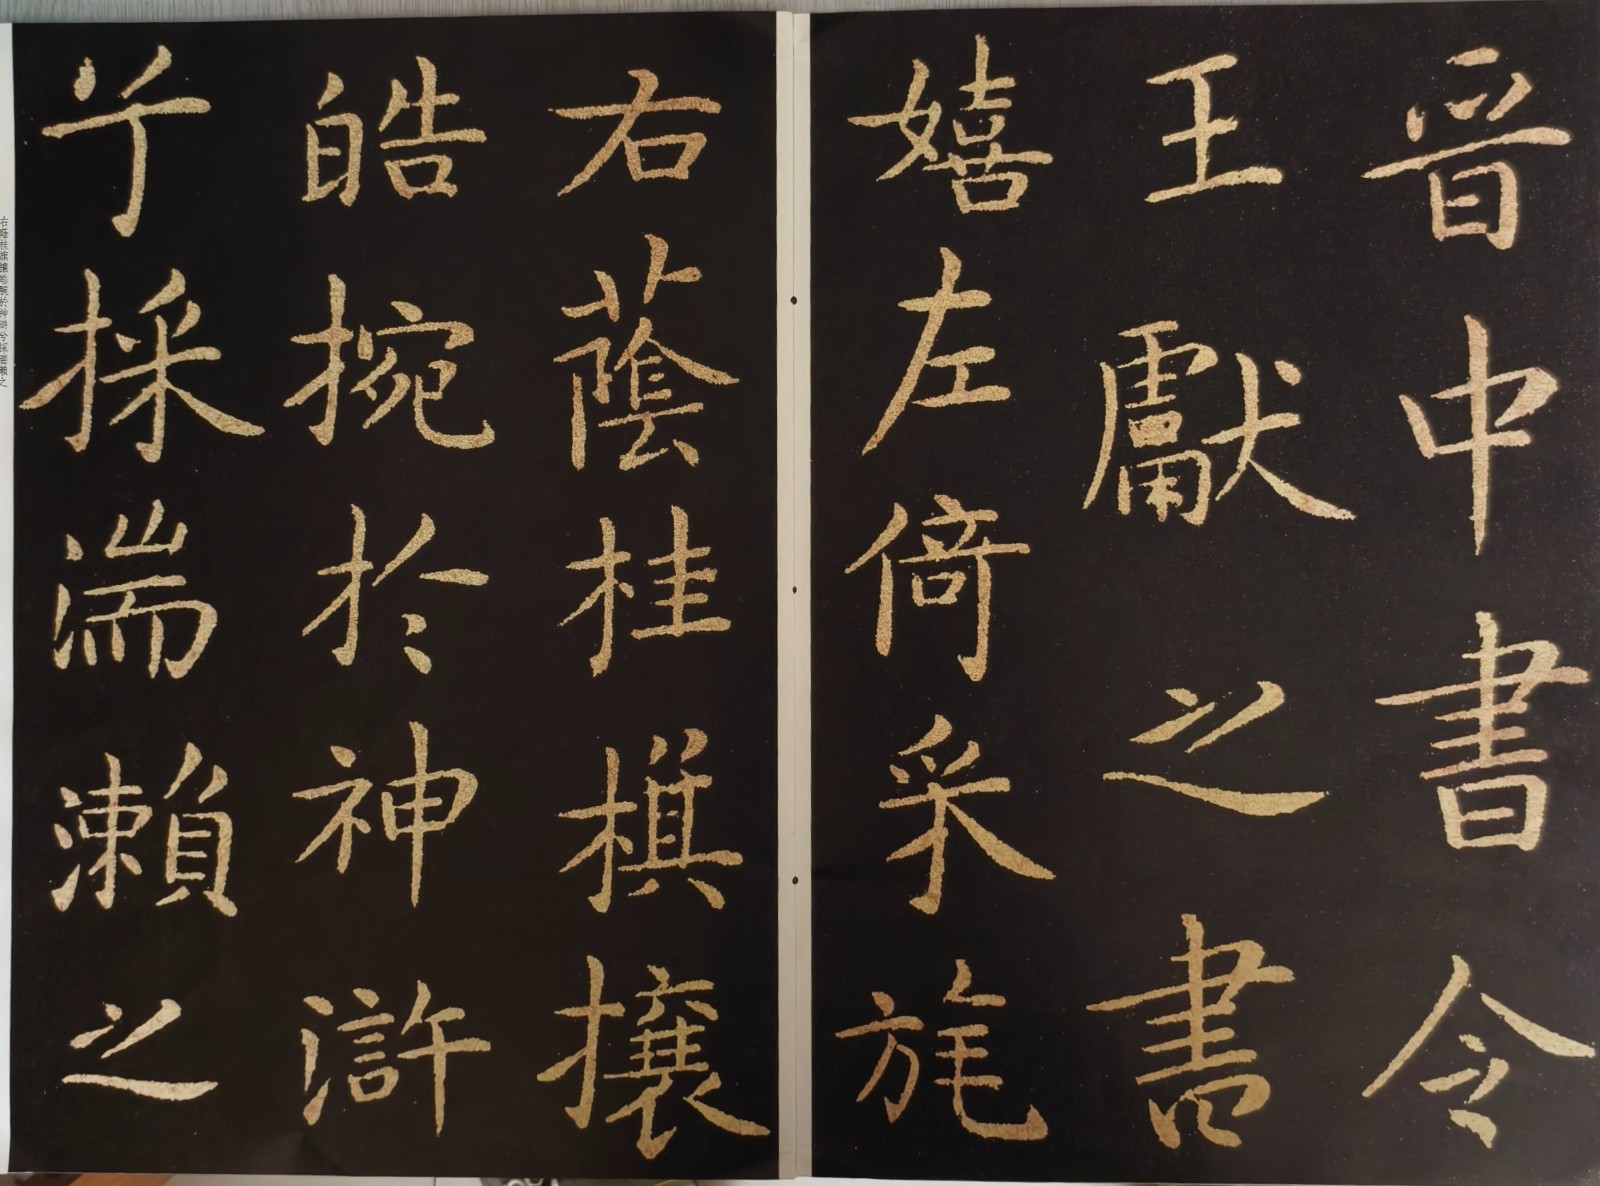 晋中書令
王獻之書
嬉左倚采旄
右蔭桂旗攘
皓捥於神滸
兮採湍瀨之
右蔭桂旗攘皓腕於神滸兮採湍瀨之